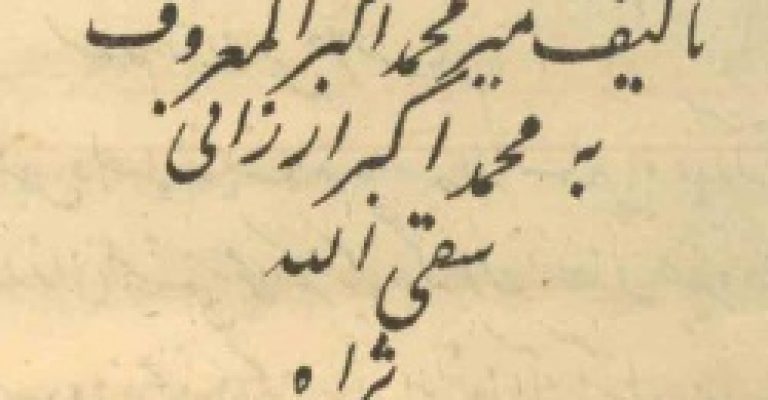 تالیف میر محمد اکبر المعروف
به محمد اکبر ارزانی
سقی الله
ثراه